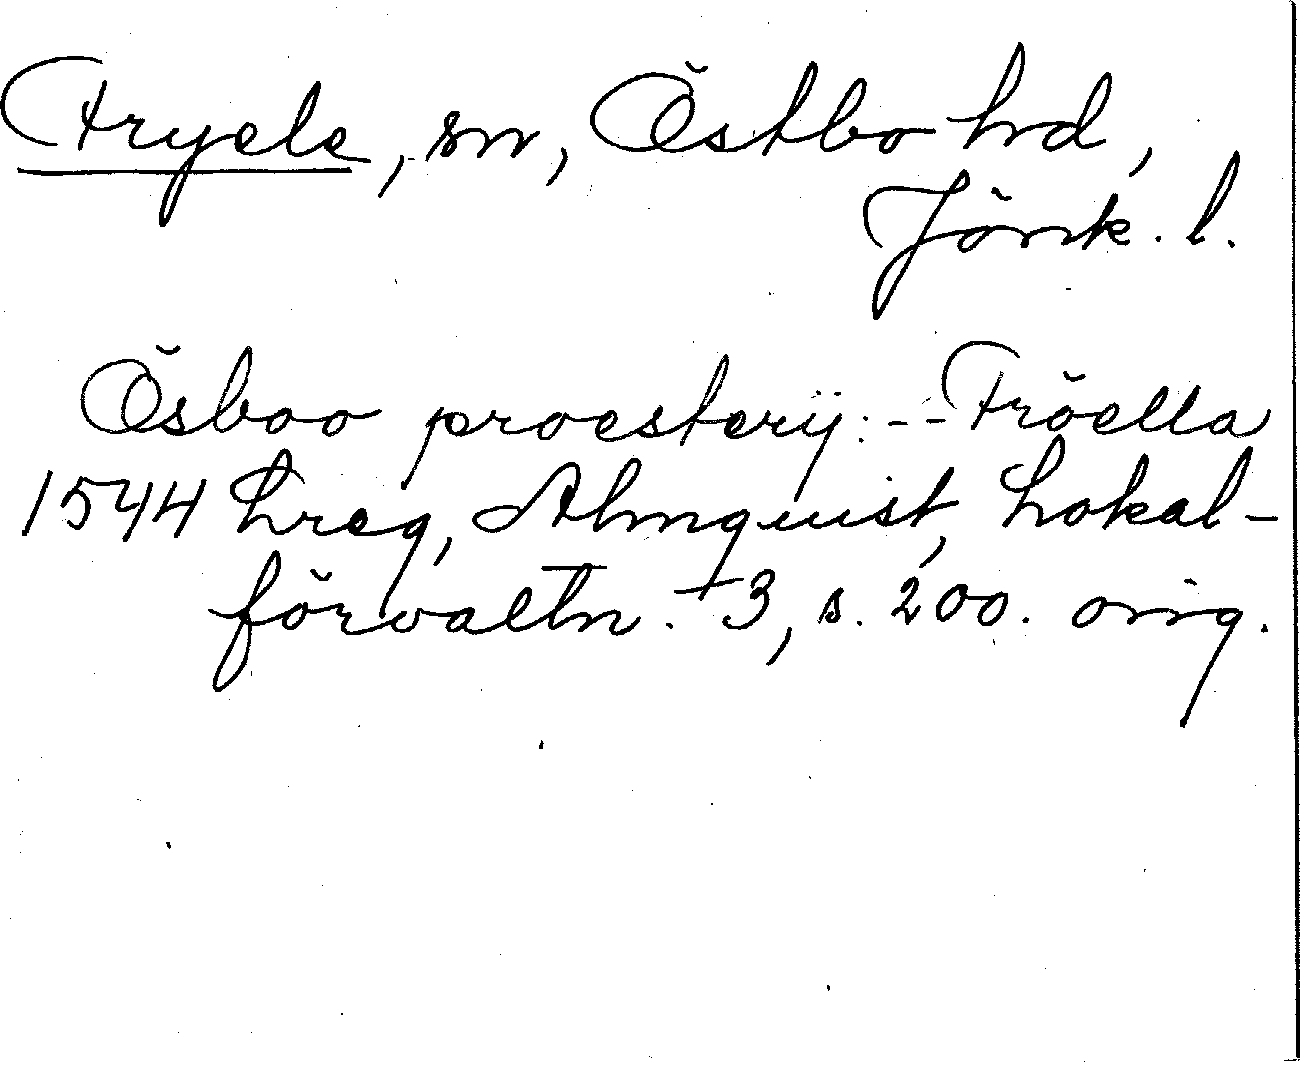 Fryele, sn, Östbo hd,
Jönk. l.
Ösboo proestery: -- Fröella
1544 Lreg, Almquist, Lokal-
förvaltn. 3, s. 200. orig.